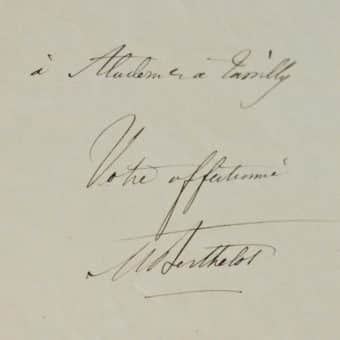 à Madame à Tarilly
Votre affectionné
M Berthelot